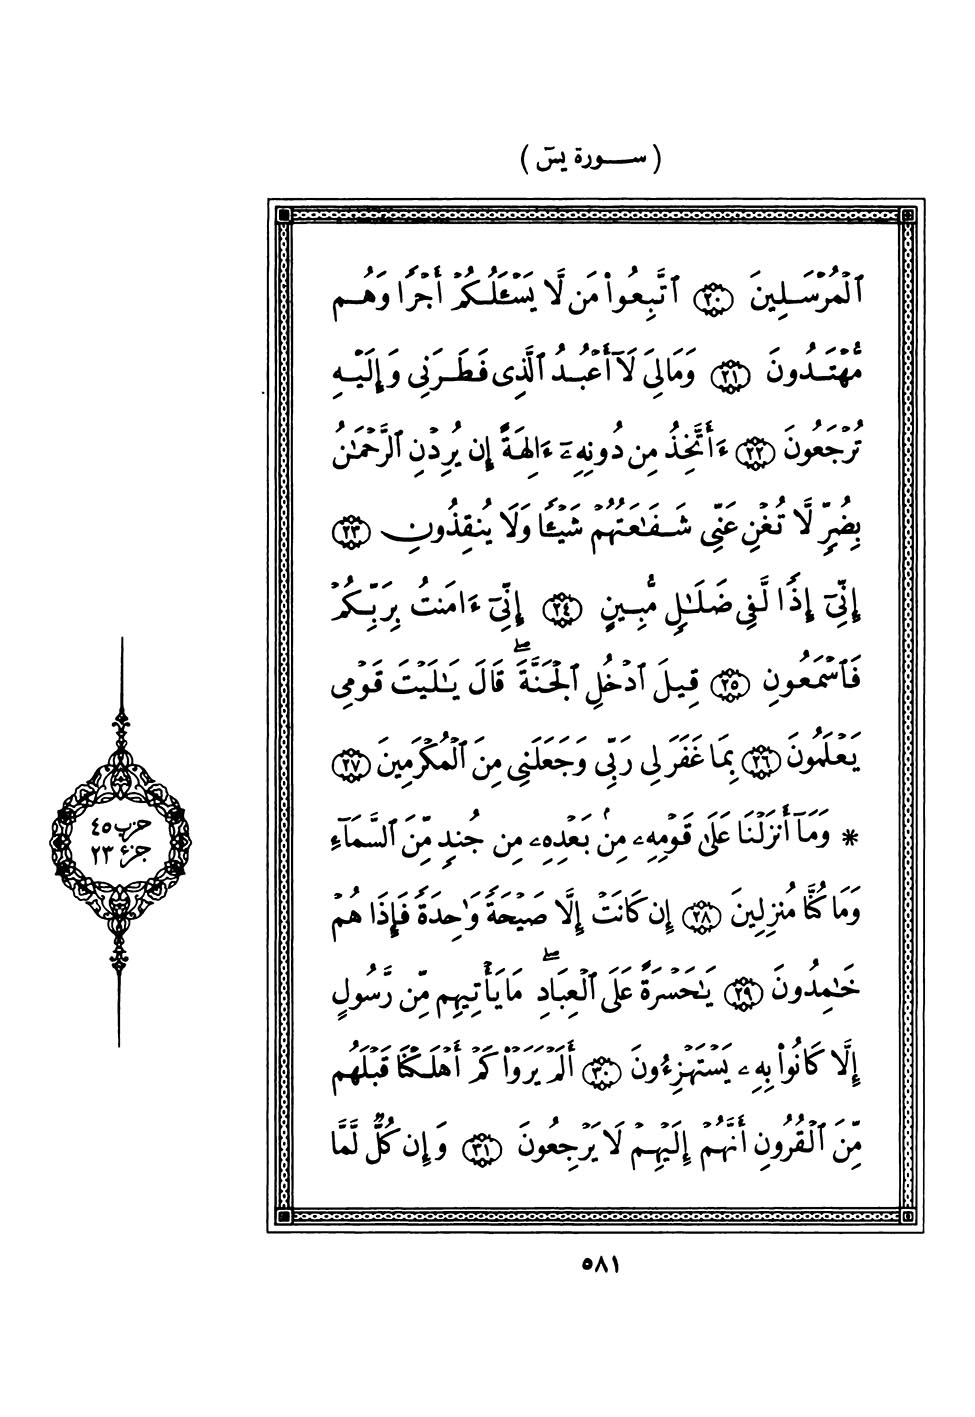 ( سورة يس )
ٱلْمُرْسَلِينَ ٢٠ ٱتَّبِعُوا۟ مَن لَّا يَسْـَٔلُكُمْ أَجْرًا وَهُم
مُّهْتَدُونَ ٢١ وَمَا لِىَ لَآ أَعْبُدُ ٱلَّذِى فَطَرَنِى وَإِلَيْهِ
تُرْجَعُونَ ٢٢ ءَأَتَّخِذُ مِن دُونِهِۦٓ ءَالِهَةً إِن يُرِدْنِ ٱلرَّحْمَـٰنُ
بِضُرٍّ لَّا تُغْنِ عَنِّى شَفَـٰعَتُهُمْ شَيْـًٔا وَلَا يُنقِذُونِ ٢٣
إِنِّىٓ إِذًا لَّفِى ضَلَـٰلٍ مُّبِينٍ ٢٤ إِنِّىٓ ءَامَنتُ بِرَبِّكُمْ
فَٱسْمَعُونِ ٢٥ قِيلَ ٱدْخُلِ ٱلْجَنَّةَ ۖ قَالَ يَـٰلَيْتَ قَوْمِى
يَعْلَمُونَ ٢٦ بِمَا غَفَرَ لِى رَبِّى وَجَعَلَنِى مِنَ ٱلْمُكْرَمِينَ ٢٧
* وَمَآ أَنزَلْنَا عَلَىٰ قَوْمِهِۦ مِنۢ بَعْدِهِۦ مِن جُندٍ مِّنَ ٱلسَّمَآءِ
وَمَا كُنَّا مُنزِلِينَ ٢٨ إِن كَانَتْ إِلَّا صَيْحَةً وَٰحِدَةً فَإِذَا هُمْ
خَـٰمِدُونَ ٢٩ يَـٰحَسْرَةً عَلَى ٱلْعِبَادِ ۖ مَا يَأْتِيهِم مِّن رَّسُولٍ
إِلَّا كَانُوا۟ بِهِۦ يَسْتَهْزِءُونَ ٣٠ أَلَمْ يَرَوْا۟ كَمْ أَهْلَكْنَا قَبْلَهُم
مِّنَ ٱلْقُرُونِ أَنَّهُمْ إِلَيْهِمْ لَا يَرْجِعُونَ ٣١ وَإِن كُلٌّ لَّمَّا
حزب ٤٥
جزء ٢٣
٥٨١